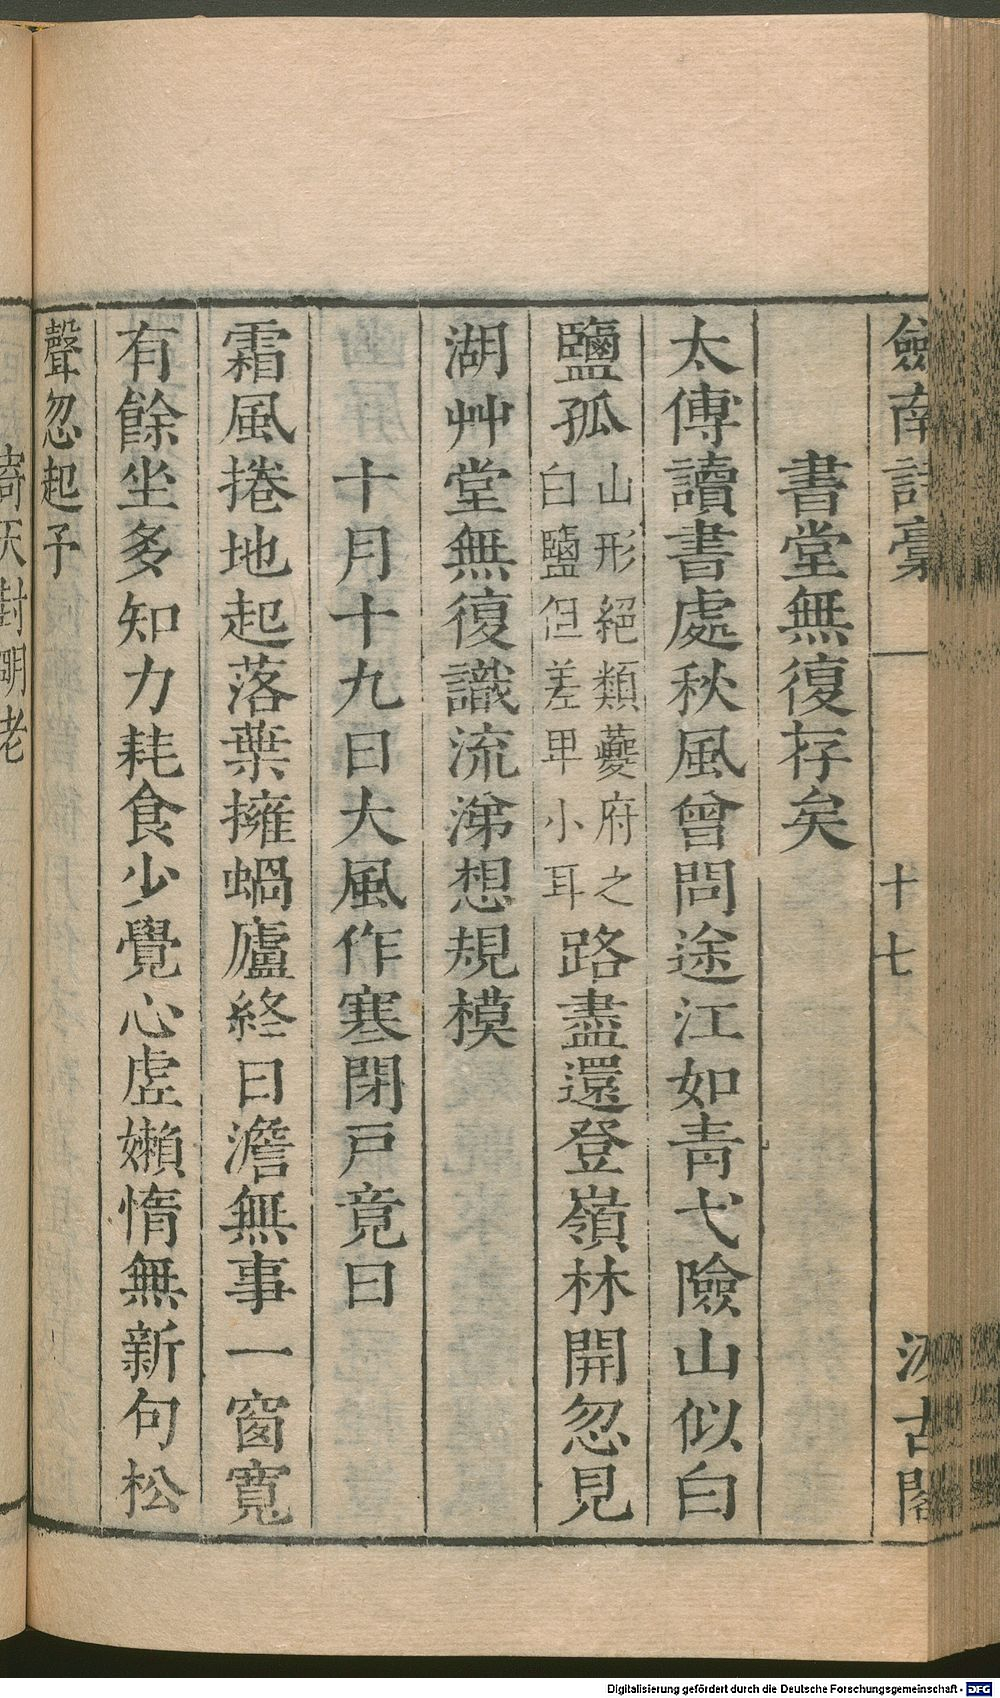 劒南詩稾 十七 汲古閣
書堂無復存矣
太傅讀書處秋風曾問途江如靑弋險山似白
鹽孤山形絕類夔府之白鹽但差卑小耳路盡還登嶺林開忽見
湖艸堂無復識流涕想規模
十月十九日大風作寒閉戸竟日
霜風捲地起落葉擁蝸廬終日澹無事一窗寬
有餘坐多知力耗食少覺心虛嬾惰無新句松
聲忽起予
倚天對朙老
Digitalisierung gefördert durch die Deutsche Forschungsgemeinschaft - DFG